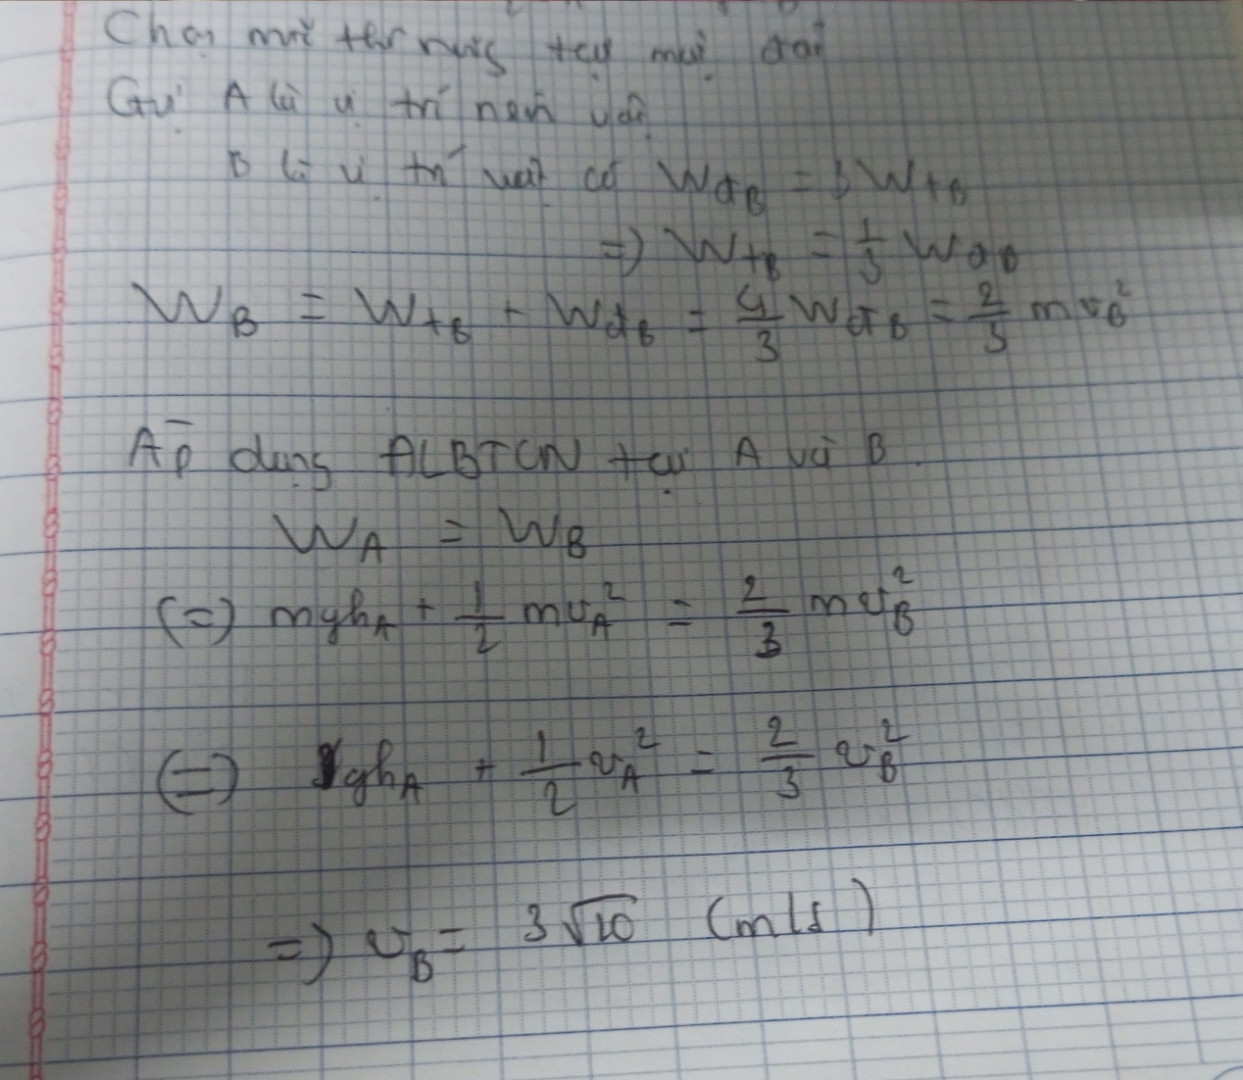 Chọn mốc thế năng tại mặt đất
Gọi A là vị trí ném vật
B là vị trí vật có WđB = 3WtB
=> WtB = 1/3 WđB
WB = WtB + WđB = 4/3 WđB = 2/3 mvB²
Áp dụng ĐLBTCN tại A và B
WA = WB
(=) mghA + 1/2 mvA² = 2/3 mvB²
(=) ghA + 1/2 vA² = 2/3 vB²
=> vB = 3√10 (m/s)